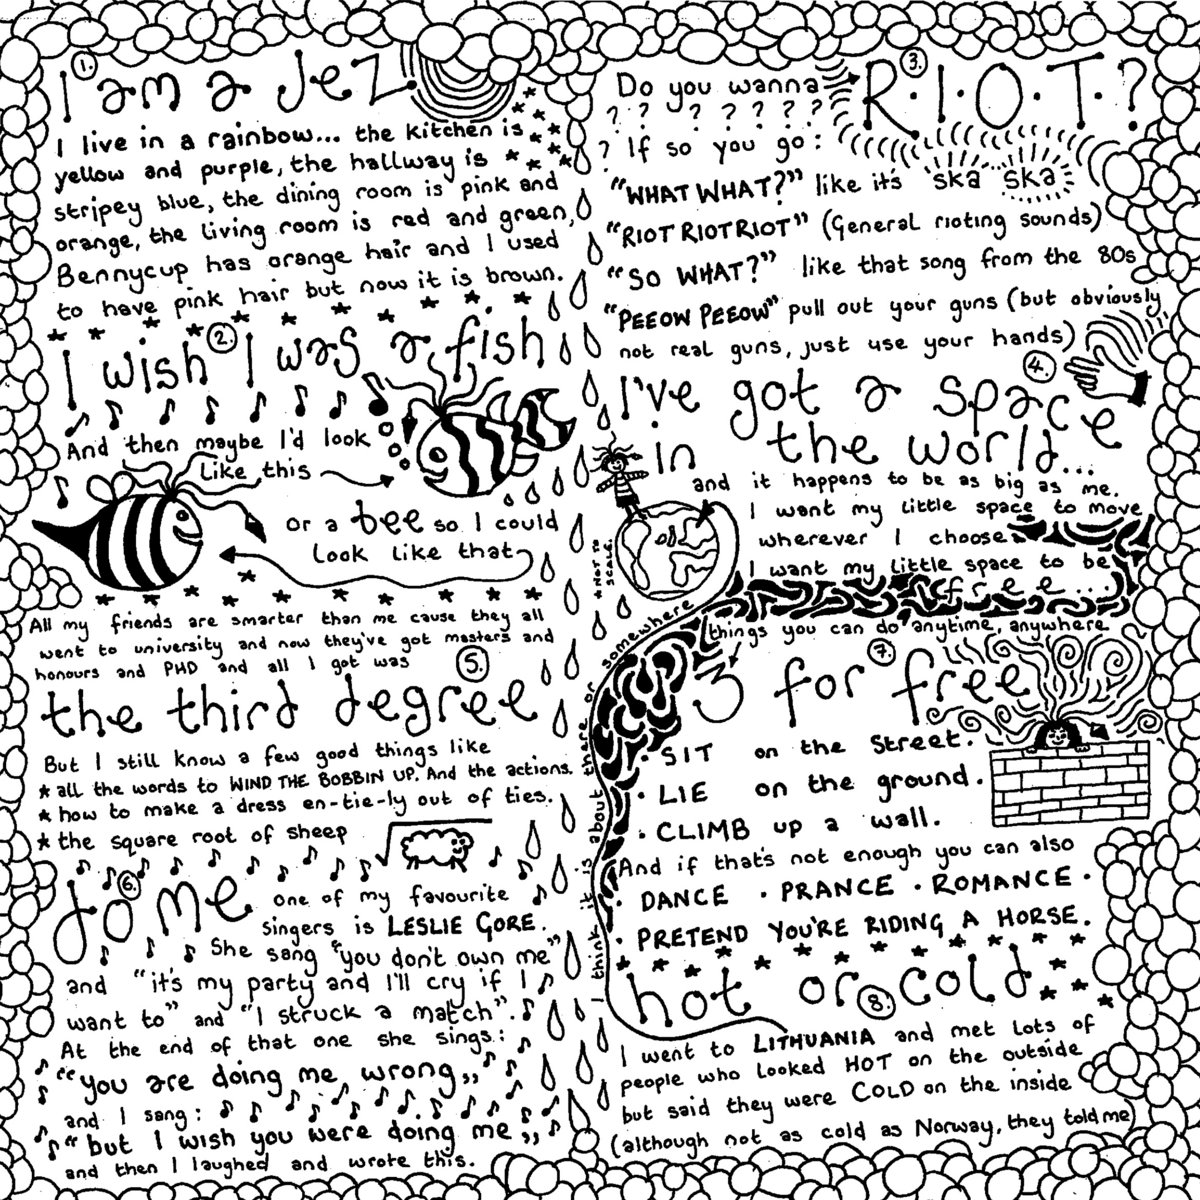 1.
I am a Jez
I live in a rainbow... the kitchen is
yellow and purple, the hallway is
stripey blue, the dining room is pink and
orange, the living room is red and green,
Bennycup has orange hair and I used
to have pink hair but now it is brown.
2.
I wish I was a fish
And then maybe I'd look
like this
or a bee so I could
look like that
All my friends are smarter than me cause they all
went to university and now they've got masters and
honours and PHD and all I got was
5.
the third degree
But I still know a few good things like
* all the words to WIND THE BOBBIN UP. And the actions.
* how to make a dress en-tie-ly out of ties.
* the square root of sheep
6.
do me
one of my favourite
singers is LESLIE GORE.
She sang "you don't own me"
and "it's my party and I'll cry if I
want to" and "I struck a match".
At the end of that one she sings:
"you are doing me wrong"
and I sang:
"but I wish you were doing me"
and then I laughed and wrote this.
3.
Do you wanna R.I.O.T.?
? ? ? ? ? ? ? ?
? If so you go:
"WHAT WHAT?" like it's ska ska
"RIOT RIOT RIOT" (General rioting sounds)
"SO WHAT?" like that song from the 80s
"PEEOW PEEOW" pull out your guns (but obviously
not real guns, just use your hands)
4.
I've got a space
in the world...
and it happens to be as big as me.
I want my little space to move
wherever I choose
I want my little space to be
free...
*NOT TO
SCALE.
I think it is about there or somewhere
things you can do anytime, anywhere.
7.
3 for free
· SIT on the street.
· LIE on the ground.
· CLIMB up a wall.
And if that's not enough you can also
· DANCE · PRANCE · ROMANCE ·
· PRETEND YOU'RE RIDING A HORSE.
hot or cold
8.
I went to LITHUANIA and met lots of
people who looked HOT on the outside
but said they were COLD on the inside
(although not as cold as Norway, they told me)